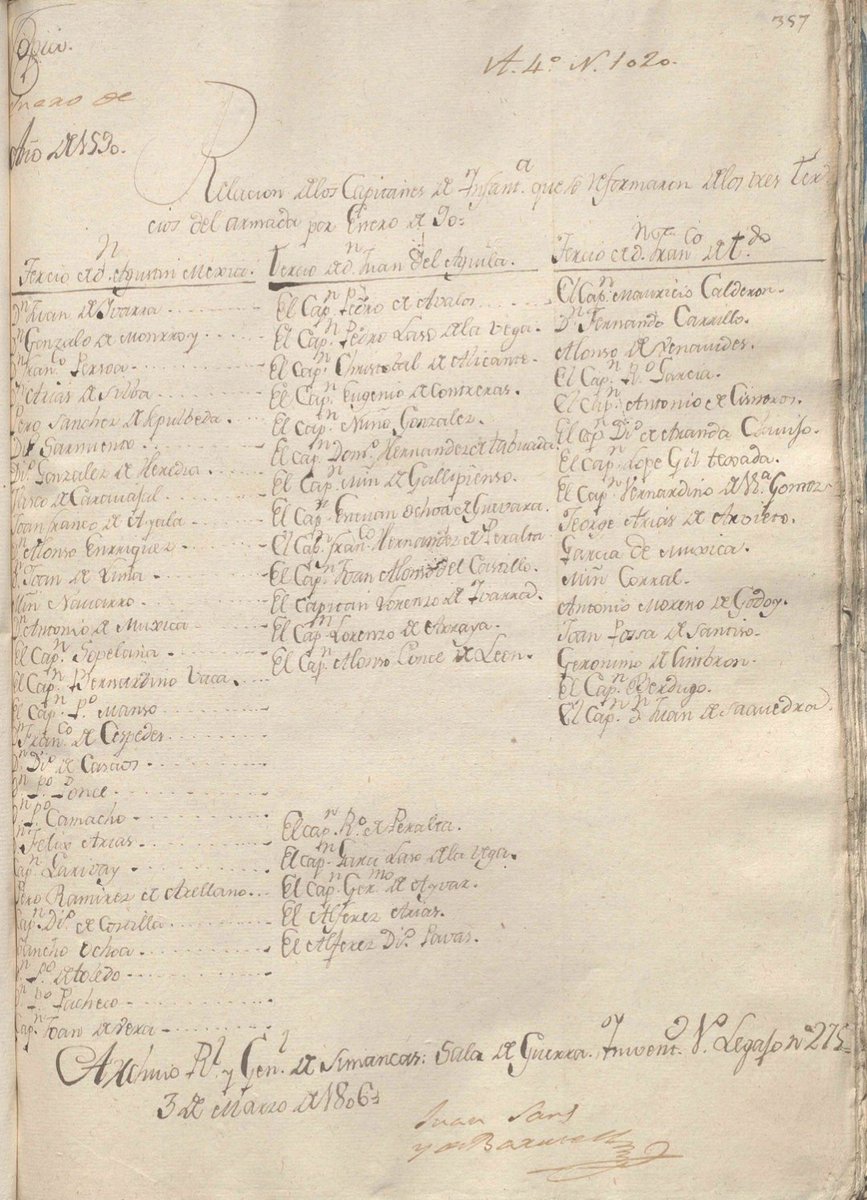 357
Copia.
A. 4º N. 1020.
Enero de
Año de 1590.
Relacion de los Capitanes de Infantª que se reformaron de los tres Ter-
cios del armada por Enero de 90=
Tercio de dⁿ Agustin Mexia.
Dⁿ Juan de Ivarra
Dⁿ Gonzalo de Monrroy
Dⁿ Franᶜᵒ Persoa
Dⁿ Arias de Silba
Pero Sanchez de Sepulbeda
Diº Sarmiento
Diº Gonzalez de Heredia
Vasco de Caravajal
Joan franco de Ayala
Dⁿ Alonso Enrriquez
Dⁿ Joan de Lima
Min Navarro
Dⁿ Antonio de Muxica
El Capⁿ Gopelana
El Capⁿ Bernardino Vaca
El Capⁿ Pº Manso
Dⁿ Franᶜᵒ de Cespedes
Dⁿ Diº de Cascos
Dⁿ Pº Ponce
Dⁿ Pº Camacho
Dⁿ Felix Arias
Capⁿ Garivay
Pero Ramirez de Arellano
Capⁿ Diº de Costilla
Sancho Ochoa
Dⁿ Pº de toledo
Dⁿ Pº Pacheco
Capⁿ Joan de Vera
Tercio de dⁿ Juan del Aguila.
El Capⁿ Pedro de Avalos
El Capⁿ Pedro Laso de la Vega.
El Capⁿ Christobal de Alicante.
El Capⁿ Eugenio de Contreras.
El Capⁿ Nuño Gonzalez.
El Capⁿ Domº Hernandez de tabuada.
El Capⁿ Min de Gallipienso.
El Capⁿ Estevan Ochoa de Guevara.
El Capⁿ Franᶜᵒ Hernandez de Peralta
El Capⁿ Joan Alonso del Castillo.
El Capitan Lorenzo de Ivarra.
El Capⁿ Lorenzo de Arraya.
El Capⁿ Alonso Ponce de Leon.
El capⁿ Rº de Peralta.
El capⁿ Garci Laso de la Vega.
El Capⁿ Germº de Ayvar.
El Alferez Arias.
El Alferez Diº Pavas.
Tercio de dⁿ Franᶜᵒ de tᵈᵒ
El Capⁿ Mauricio Calderon.
Dⁿ Fernando Carrillo.
Alonso de Venavides.
El Capⁿ Rº Garcia.
El Capⁿ Antonio de Cisneros.
El capⁿ Diº de Aranda
El Capⁿ Lope Gil texada.
El Capⁿ Vernardino de Gomez
Jeorge Arias de Arvieto.
Garcia de Muxica.
Min Corral.
Antonio Moreno de Godoy.
Joan Possa de Santiso.
Geronimo de Cimbron.
El Capⁿ Berdugo.
El Capⁿ Dⁿ Juan de Saavedra.
Archivo Rˡ y Genˡ de Simancas: Sala de Guerra. Inventº Nº Legajo nº 275=
3 de Marzo de 1806=
Juan Sans
y de Barutell